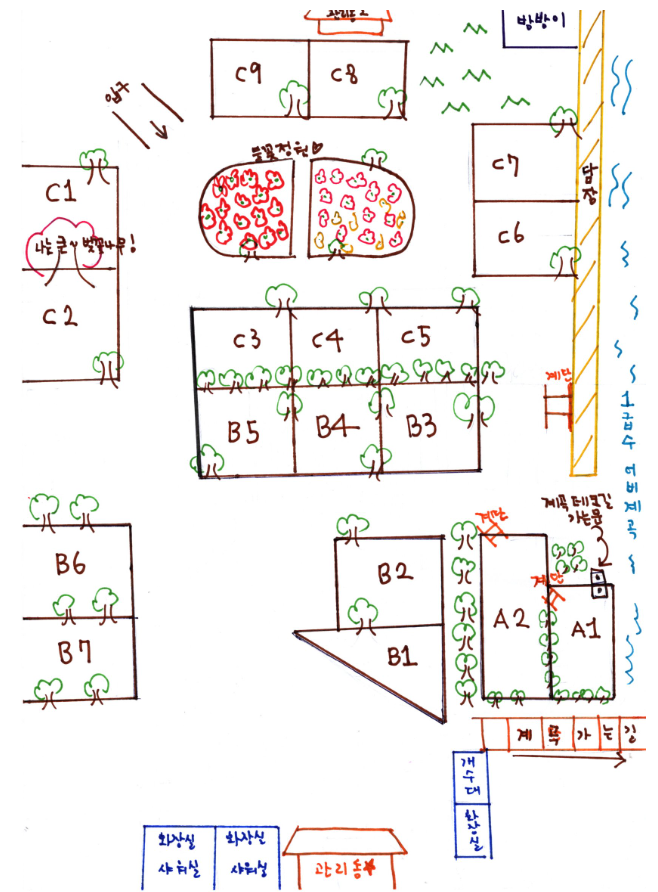 관리동
방방이
C9
C8
입구
C7
담장
C6
들꽃정원
C1
나는 큰 벚꽃나무!
C2
C3
C4
C5
계단
B5
B4
B3
1급수 어비계곡
계곡 데크길
가는문
계단
B6
B2
계단
A2
A1
B7
B1
계곡가는길
개수대
화장실
화장실
샤워실
화장실
샤워실
관리동